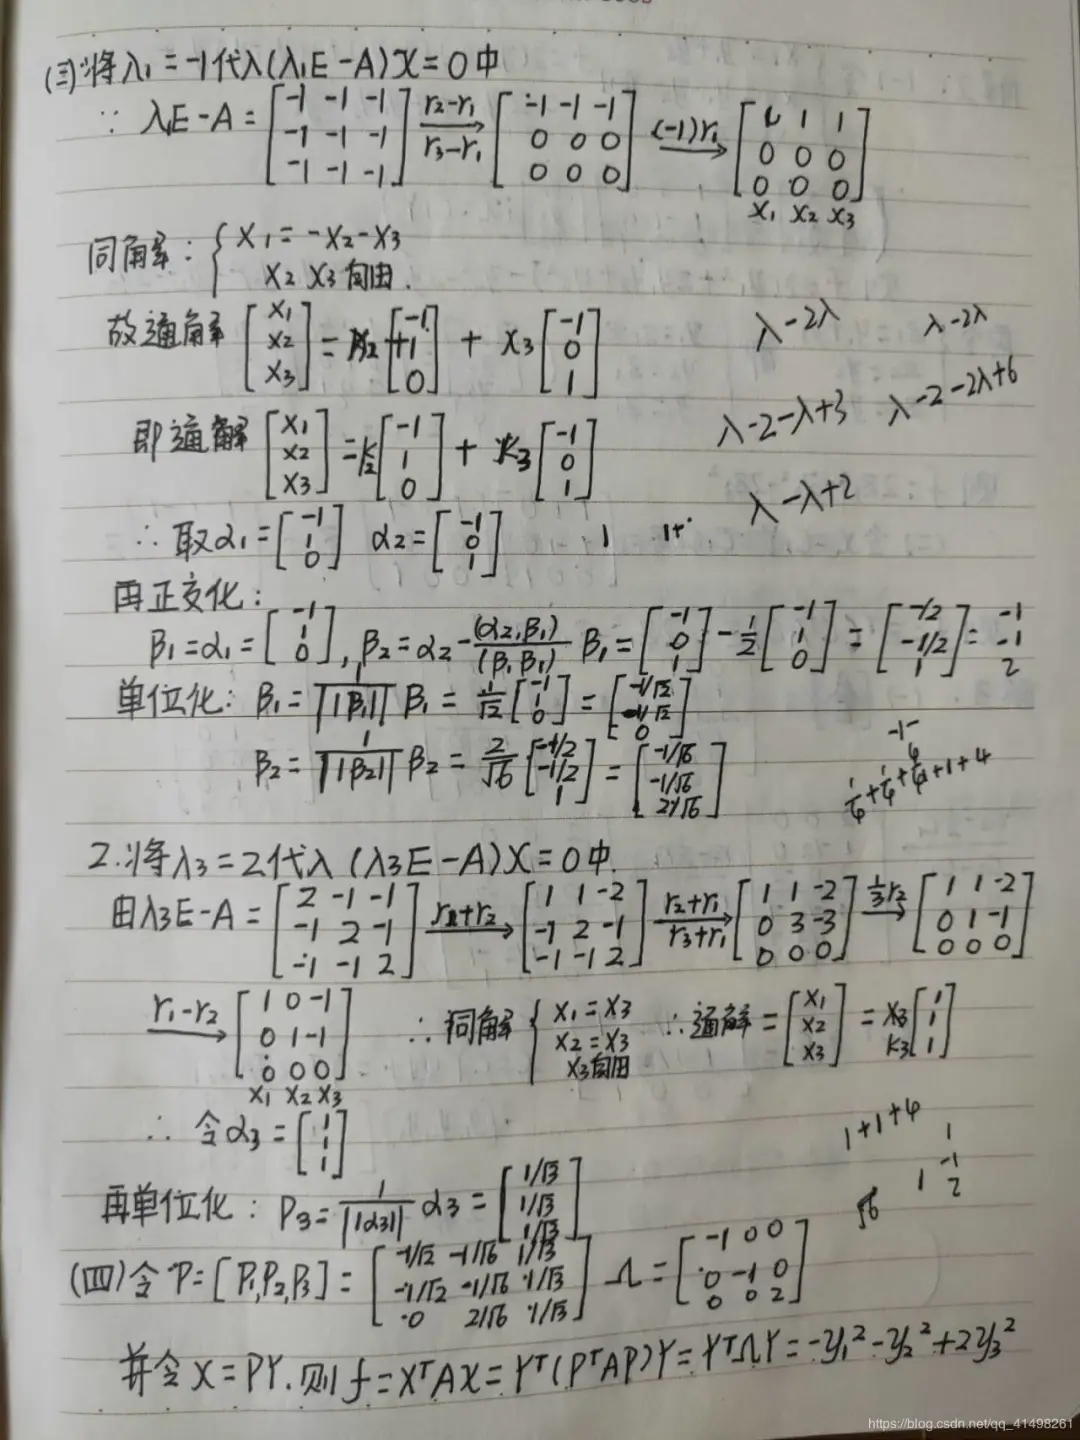 (三)将λ₁=-1代入(λ₁E-A)X=0中
∵ λ₁E-A=[-1 -1 -1; -1 -1 -1; -1 -1 -1] r₂-r₁ r₃-r₁ → [-1 -1 -1; 0 0 0; 0 0 0] (-1)r₁ → [1 1 1; 0 0 0; 0 0 0]
x₁ x₂ x₃
同解: { x₁=-x₂-x₃
x₂ x₃自由.
故通解 [x₁; x₂; x₃] = x₂[-1; +1; 0] + x₃[-1; 0; 1]
λ-2λ λ-2λ
λ-2-λ+3 λ-2-2λ+6
即通解 [x₁; x₂; x₃] = k₂[-1; 1; 0] + k₃[-1; 0; 1]
λ-λ+2
∴ 取α₁=[-1; 1; 0] α₂=[-1; 0; 1] 1 1+
再正交化:
β₁=α₁=[-1; 1; 0], β₂=α₂-(α₂,β₁)/(β₁,β₁) β₁=[-1; 0; 1]-1/2[-1; 1; 0]=[-1/2; -1/2; 1]= -1 -1 2
单位化: β₁=1/||β₁|| β₁=1/√2[-1; 1; 0]=[-1/√2; -1/√2; 0]
β₂=1/||β₂|| β₂=2/√6[-1/2; -1/2; 1]=[-1/√6; -1/√6; 2/√6]
2.将λ₃=2代入(λ₃E-A)X=0中.
由λ₃E-A=[2 -1 -1; -1 2 -1; -1 -1 2] → [1 1 -2; -1 2 -1; -1 -1 2] r₂+r₁ r₃+r₁ → [1 1 -2; 0 3 -3; 0 0 0] 1/3r₂ → [1 1 -2; 0 1 -1; 0 0 0]
r₁-r₂ → [1 0 -1; 0 1 -1; 0 0 0] ∴同解 { x₁=x₃ x₂=x₃ x₃自由 ∴通解=[x₁; x₂; x₃]=x₃ k₃[1; 1; 1]
x₁ x₂ x₃
∴ 令α₃=[1; 1; 1]
1+1+4
1 -1 2
1
√6
再单位化: P₃=1/||α₃|| α₃=[1/√3; 1/√3; 1/√3]
(四)令P=[P₁,P₂,P₃]=[-1/√2 -1/√6 1/√3; -1/√2 -1/√6 1/√3; 0 2/√6 1/√3] Λ=[-1 0 0; 0 -1 0; 0 0 2]
并令X=PY.则f=XᵀAX=Yᵀ(PᵀAP)Y=YᵀΛY=-y₁²-y₂²+2y₃²
https://blog.csdn.net/qq_41498261